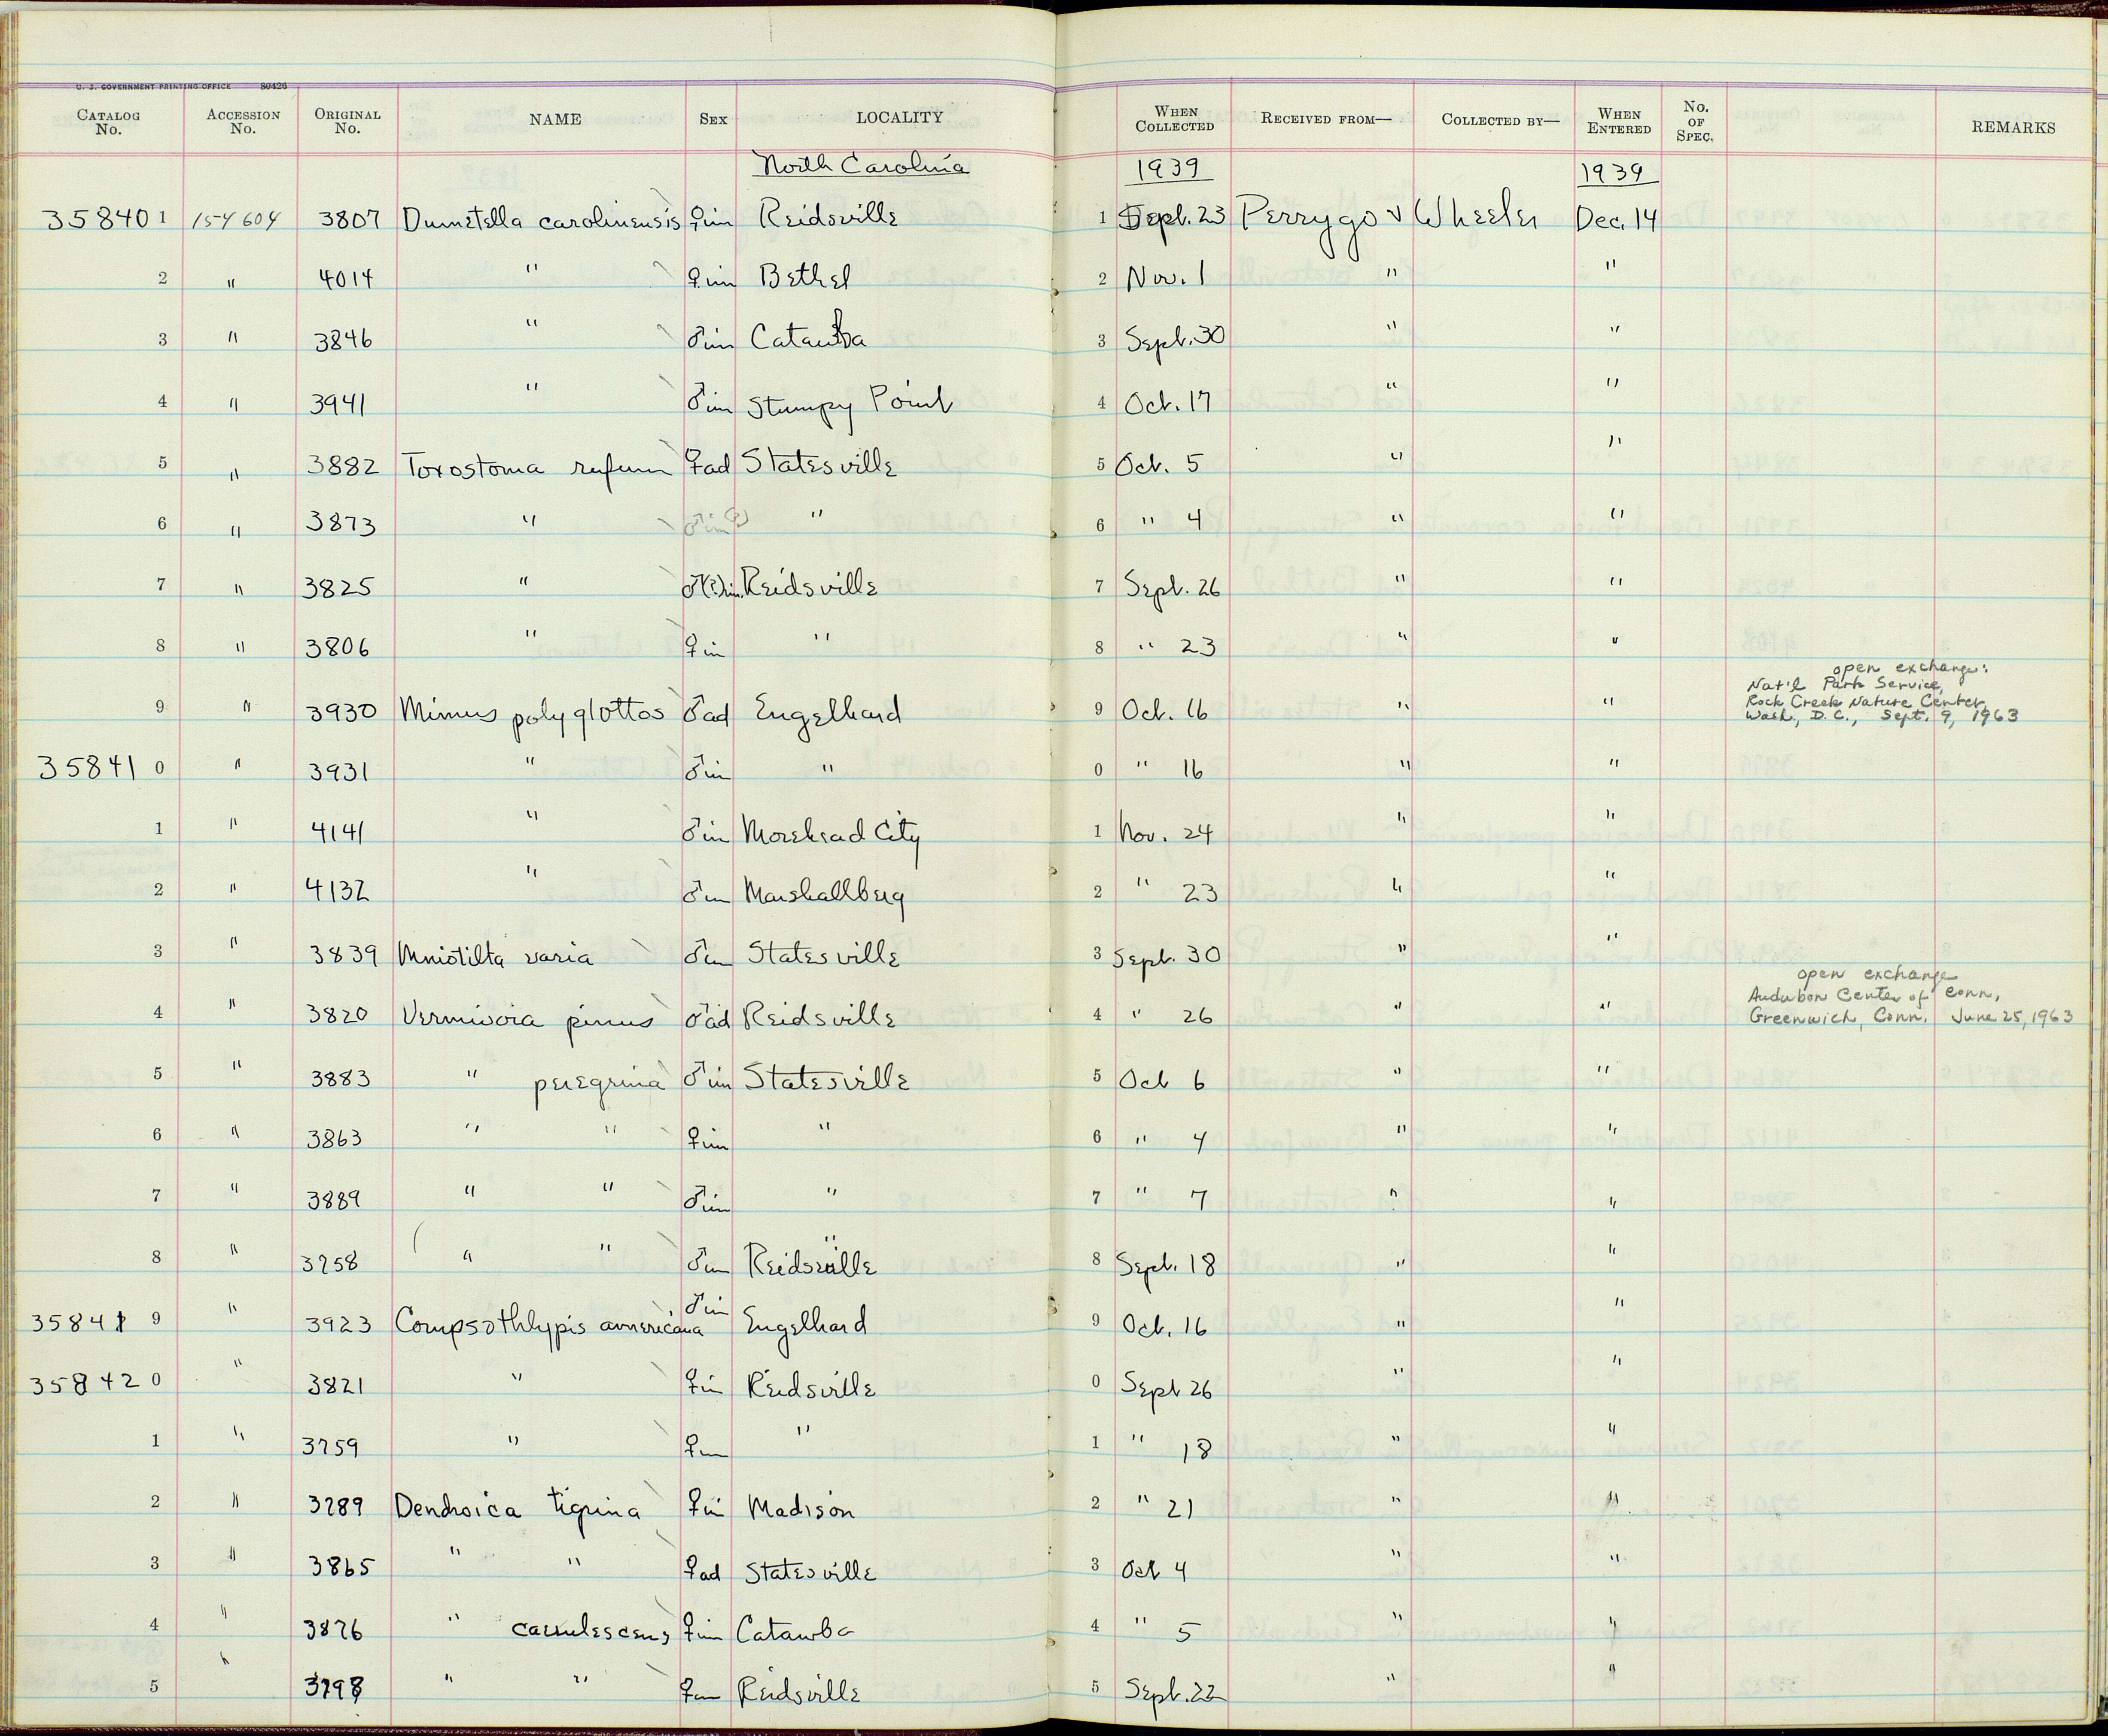 U. S. GOVERNMENT PRINTING OFFICE 80426
CATALOG No. ACCESSION No. ORIGINAL No. NAME SEX LOCALITY WHEN COLLECTED RECEIVED FROM— COLLECTED BY— WHEN ENTERED No. OF SPEC. REMARKS
North Carolina 1939 1939
358401 154604 3807 Dumetella carolinensis ♀im Reidsville 1 Sept. 23 Perrygo & Wheeler Dec. 14
2 " 4014 " ♀im Bethel 2 Nov. 1 " "
3 " 3846 " ♂im Catawba 3 Sept. 30 " "
4 " 3941 " ♂im Stumpy Point 4 Oct. 17 " "
5 " 3882 Toxostoma rufum ♀ad Statesville 5 Oct. 5 " "
6 " 3873 " ♂im(?) " 6 " 4 " "
7 " 3825 " ♂(?)im Reidsville 7 Sept. 26 " "
8 " 3806 " ♀im " 8 " 23 " "
open exchange:
Nat'l Park Service,
Rock Creek Nature Center,
Wash., D.C., Sept. 9, 1963
9 " 3930 Mimus polyglottos ♂ad Engelhard 9 Oct. 16 " "
358410 " 3931 " ♂im " 0 " 16 " "
1 " 4141 " ♂im Morehead City 1 Nov. 24 " "
2 " 4132 " ♂im Marshallberg 2 " 23 " "
3 " 3839 Mniotilta varia ♂im Statesville 3 Sept. 30 " "
open exchange
Audubon Center of Conn.,
Greenwich, Conn. June 25, 1963
4 " 3820 Vermivora pinus ♂ad Reidsville 4 " 26 " "
5 " 3883 " peregrina ♂im Statesville 5 Oct 6 " "
6 " 3863 " " ♀im " 6 " 4 " "
7 " 3889 " " ♂im " 7 " 7 " "
8 " 3758 " " ♂im Reidsville 8 Sept. 18 " "
358419 " 3923 Compsothlypis americana ♂im Engelhard 9 Oct. 16 " "
358420 " 3821 " ♀im Reidsville 0 Sept 26 " "
1 " 3759 " ♀im " 1 " 18 " "
2 " 3789 Dendroica tigrina ♀im Madison 2 " 21 " "
3 " 3865 " " ♀ad Statesville 3 Oct 4 " "
4 " 3876 " caerulescens ♀im Catawba 4 " 5 " "
5 " 3798 " " ♀im Reidsville 5 Sept. 22 " "